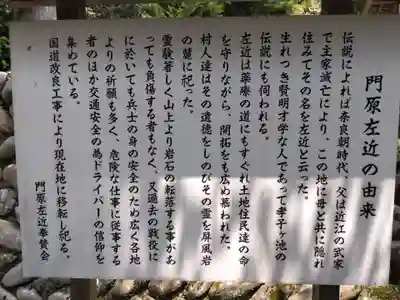 門原左近の由来
伝説によれば奈良朝時代、父は近江の武家
で主家滅亡により、この地に母と共に隠れ
住みてその名を左近と云った。
生れつき賢明才学な人であって孝子ヶ池の
伝説にも伺われる。
左近は薬療の道にもすぐれ土地住民達の命
を守りながら、開拓をも広め慕われた。
村人達はその遺徳をしのびその霊を屏風岩
の麓に祀った。
霊験著しく山上より岩石の転落する事があ
っても負傷する者もなく、又過去の戦役に
於いても兵士の身の安全のため広く各地
よりの祈願も多く、危険な仕事に従事する
者のほか交通安全の為ドライバーの信仰を
集めている。
国道改良工事により現在地に移転し祀る。
門原左近奉賛会